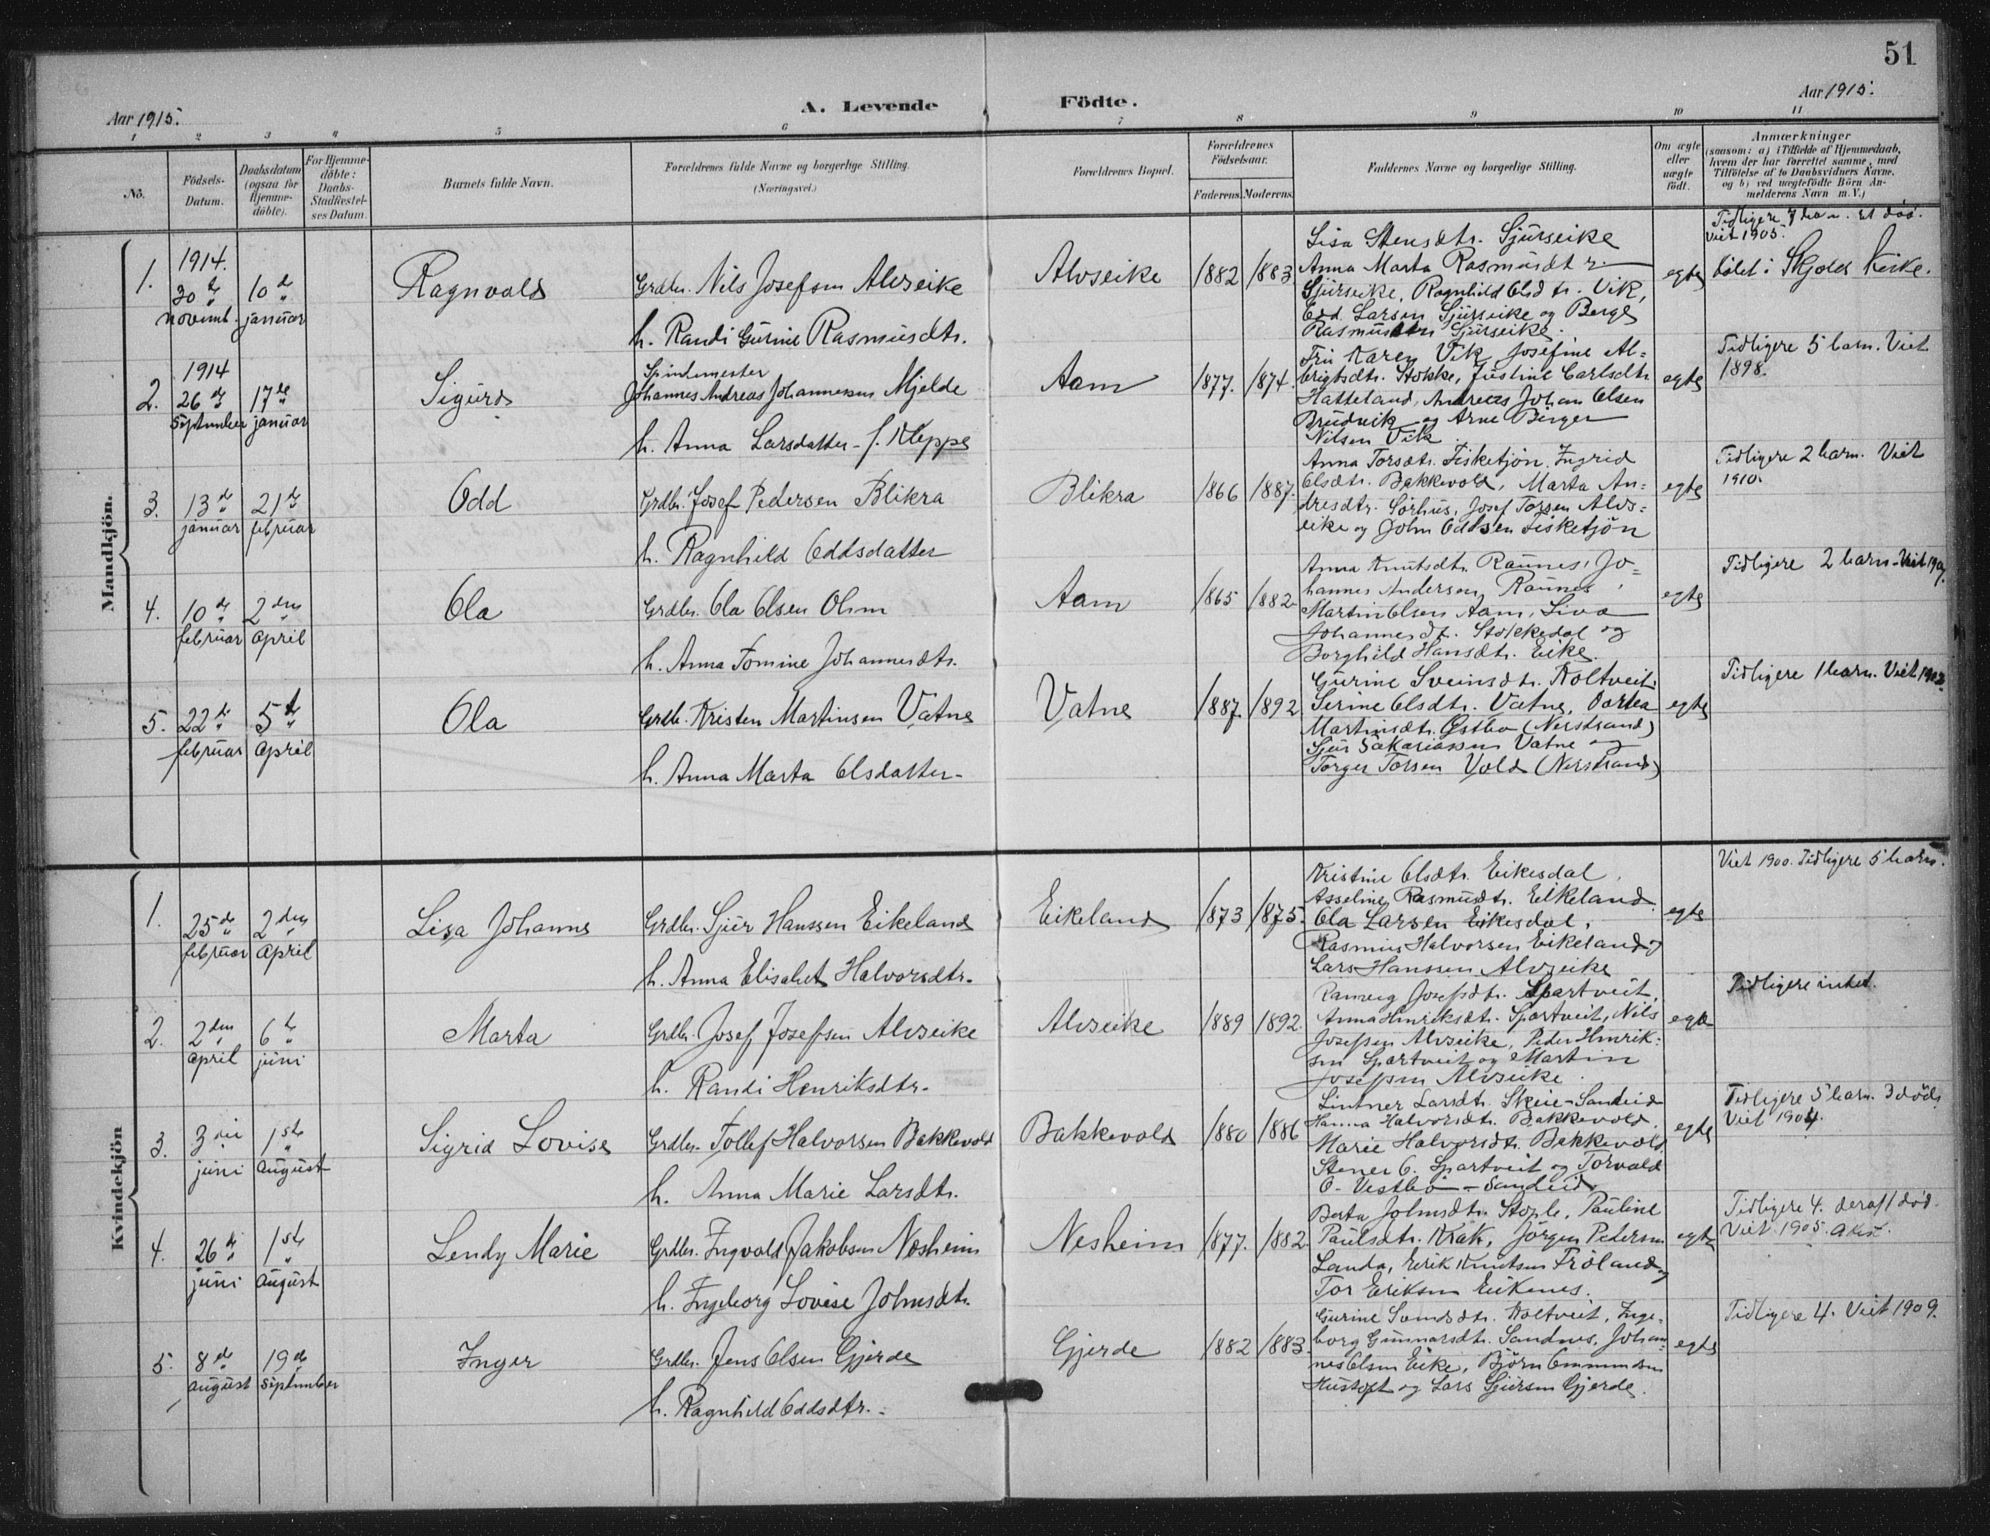 51
Aar 1915.
A. Levende Födte.
Aar 1915.
1 2 3 4 5 6 7 8 9 10 11
No.
Födsels-Datum.
Daabsdatum (ogsaa for Hjemme-döbte).
For Hjemme-döbte: Daabs-Stadfæstel-ses Datum.
Barnets fulde Navn.
Forældrenes fulde Navne og borgerlige Stilling.
(Næringsvei.)
Forældrenes Bopæl.
Forældrenes Födselsaar.
Faderens. Moderens.
Faddernes Navne og borgerlige Stilling.
Om ægte eller uægte födt.
Anmærkninger
(saasom: a) i Tilfælde af Hjemmedaab,
hvem der har forrettet samme, med
Tilföielse af to Daabsvidners Navne,
og b) ved uægtefödte Börn An-
melderens Navn m. V.)
Mandkjön.
1. 1914. 30te novemb. 10de januar Ragnvald
Grdbr. Nils Josefsen Alvseike
h. Randi Gurine Rasmusdtr.
Alvseike 1882 1883
Lisa Stensdtr. Sjurseike
Anna Marta Rasmusdtr.
Sjurseike, Ragnhild Olsdtr. Vik,
Edd. Larsen Sjurseike og Berge
Rasmussen Sjurseike.
egte
Tidligere 7 barn. Et död.
Viet 1905.
döbt i Skjold kirke.
2. 1914 26de september 17de januar Sigurd
Spindemester
Johannes Andreas Johannessen Mjelde
h. Anna Larsdatter f. Kleppe
Aam 1877. 1874.
Fru Karen Vik, Josefine Al-
brigtsdtr. Stokke, Justine Carlsdtr.
Hatteland, Andreas Johan Olsen
Brudvik og Arne Birger
Nilsen Vik.
egte
Tidligere 5 barn. Viet
1898.
3. 13de januar 21de februar Odd
Grdbr. Josef Pedersen Blikra
h. Ragnhild Oddsdatter
Blikra 1866 1887.
Anna Torsdtr. Fisketjön. Ingrid
Olsdtr. Bakkevold, Marta An-
dresdtr. Sörhus, Josef Torsen Alvs-
eike og John Oddsen Fisketjön
egte
Tidligere 2 barn. Viet
1910.
4. 10de februar 2den april Ola
Grdbr. Ola Olsen Ohm
h. Anna Tomine Johannesdtr.
Aam 1865 1882
Anna Knutsdtr. Raunes, Jo-
hannes Andersen Raunes,
Martin Olsen Aam, Siva
Johannesdtr. Stokkedal og
Borghild Hansdtr. Eike.
egte
Tidligere 2 barn. Viet
5. 22de februar 5te april Ola
Grdb. Kristen Martinsen Vatne
h. Anna Marta Olsdatter
Vatne 1887. 1892
Gurine Sveinsdtr. Koltveit
Serine Olsdtr. Vatne, Dortea
Martinsdtr. Østbø (Nerstrand)
Sjur Sakariassen Vatne og
Torger Torsen Vold (Nerstrand)
egte
Tidligere 1 barn. Viet
Kvindekjön
1. 25de februar 2den april Lisa Johanne
Grdbr. Sjur Hanssen Eikeland
h. Anna Elisabet Halvorsdtr.
Eikeland 1873 1875.
Kristine Olsdtr. Eikesdal,
Asseline Rasmusdtr. Eikeland
Ola Larsen Eikesdal,
Rasmus Halvorsen Eikeland og
Lars Hanssen Alvseike
egte
Viet 1900. Tidligere 5 barn.
2. 2den april 6te juni Marta
Grdbr. Josef Josefsen Alvseike
h. Randi Henriksdtr.
Alvseike 1889 1892.
Ranveig Josefsdtr. Spartveit,
Anna Henriksdtr. Spartveit, Nils
Josefsen Alvseike, Peder Henrik-
sen Spartveit og Martin
Josefsen Alvseike.
egte
Tidligere intet.
3. 3die juni 1ste august Sigrid Lovise
Grdbr. Tollef Halvorsen Bakkevold
h. Anna Marie Larsdtr.
Bakkevold 1880 1886
Larsdtr. Skeie - Sandeid
Hanna Halvorsdtr. Bakkevold,
Marie Halvorsdtr. Bakkevold
Stener O. Spartveit og Torvald
O. Vestbø - Sandeid
egte
Tidligere 5 barn. 3 död.
Viet 1904.
4. 26de juni 1ste august Lendy Marie
Grdbr. Ingvald Jakobsen Nesheim
h. Ingeborg Lovise Johnsdtr.
Nesheim 1877. 1882.
Berta Johnsdtr. Stople, Pauline
Paulsdtr. Krak, Jörgen Pedersen
Landa, Eirik Knutsen Fröland og
Tor Eriksen Eikenes.
egte
Tidligere 4. deraf 1 död.
Viet 1905.
5. 8de august 19de september Inger
Grdbr. Jens Olsen Gjerde
h. Ragnhild Oddsdtr.
Gjerde 1882 1883.
Gurine Svendsdtr. Koltveit, Inge-
borg Gunnarsdtr. Sandnes, Johan-
nes Olsen Eike, Björn Ommundsen
Hustoft og Lars Sjursen Gjerde.
egte
Tidligere 4. Viet 1909.